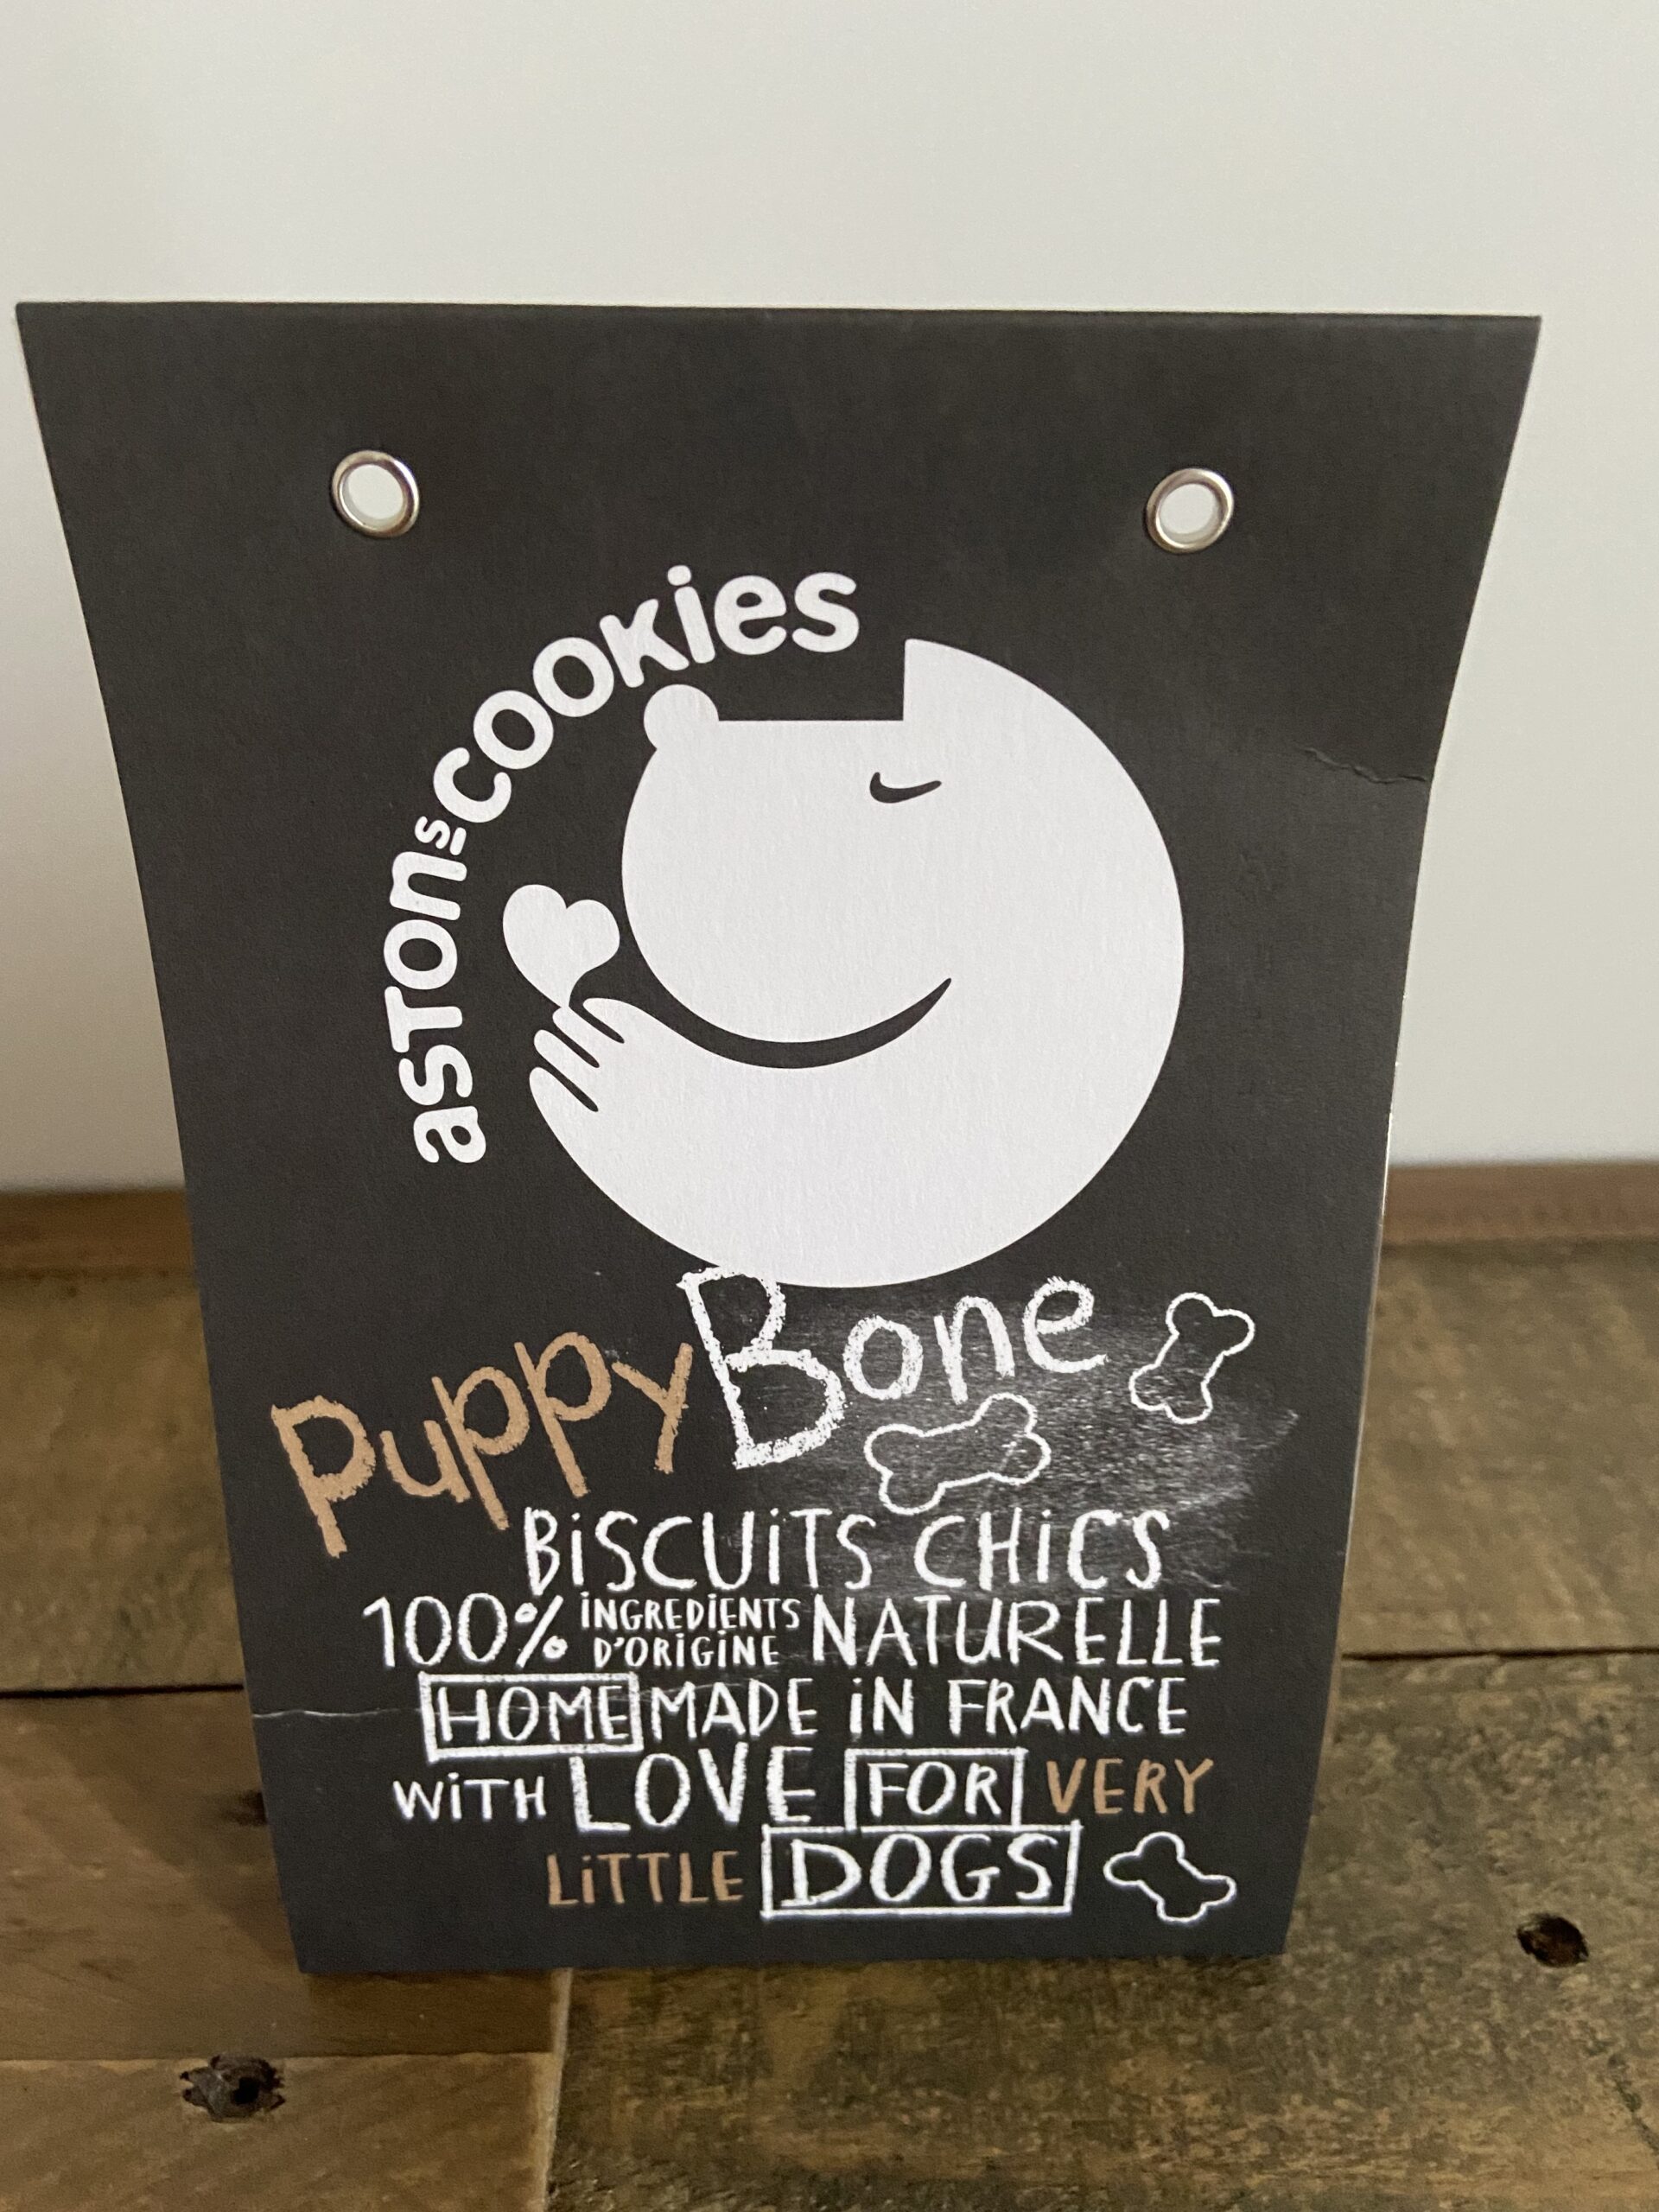 asTonscOOkies
PuppyBone
BiSCUiTS CHiCS
100% iNGREDiENTS D'ORiGiNE NATURELLE
HOME MADE iN FRANCE
WiTH LOVE FOR VERY
LiTTLE DOGS